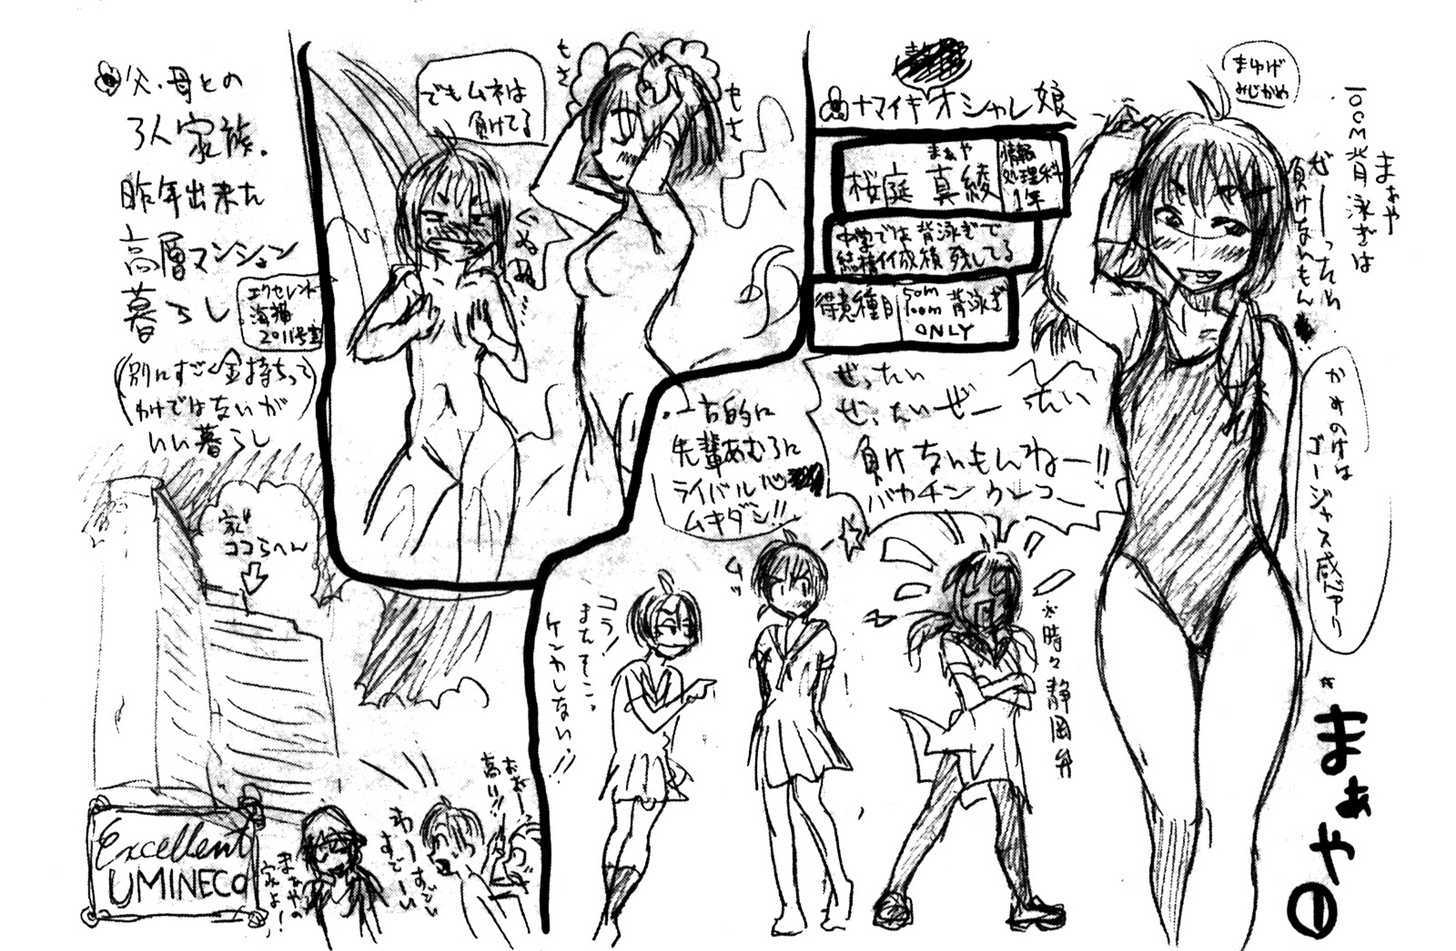 まゆげ
みじかめ
まぁや
100M背泳ぎは
ぜーったい
負けないもん
かみのけは
ゴージャス感アリ
まぁや①
ナマイキオシャレ娘
まぁや
桜庭 真綾
情報
処理科
1年
中学では背泳ぎで
結構イイ成績残してる
得意種目
50m
100m
背泳ぎ
ONLY
ぜったい
ぜったいぜーったい
負けないもんねー!!
バカチンウンコー
一方的に
先輩あむろに
ライバル心
ムキダシ!!
ムッ
※時々静岡弁
コラ!
またそこっ
ケンカしない!!
もさ
もさ
でもムネは
負けてる
ぐぬぬ…
父・母との
3人家族。
昨年出来た
高層マンション
暮らし
エクセレント
海猫
2011号室
(別にすごく金持ちって
わけではないが
いい暮らし)
家
ココらへん
Excellent
UMINECO
まぁやの
家よー!
わーすごい
すごーい
おおー
高い!!